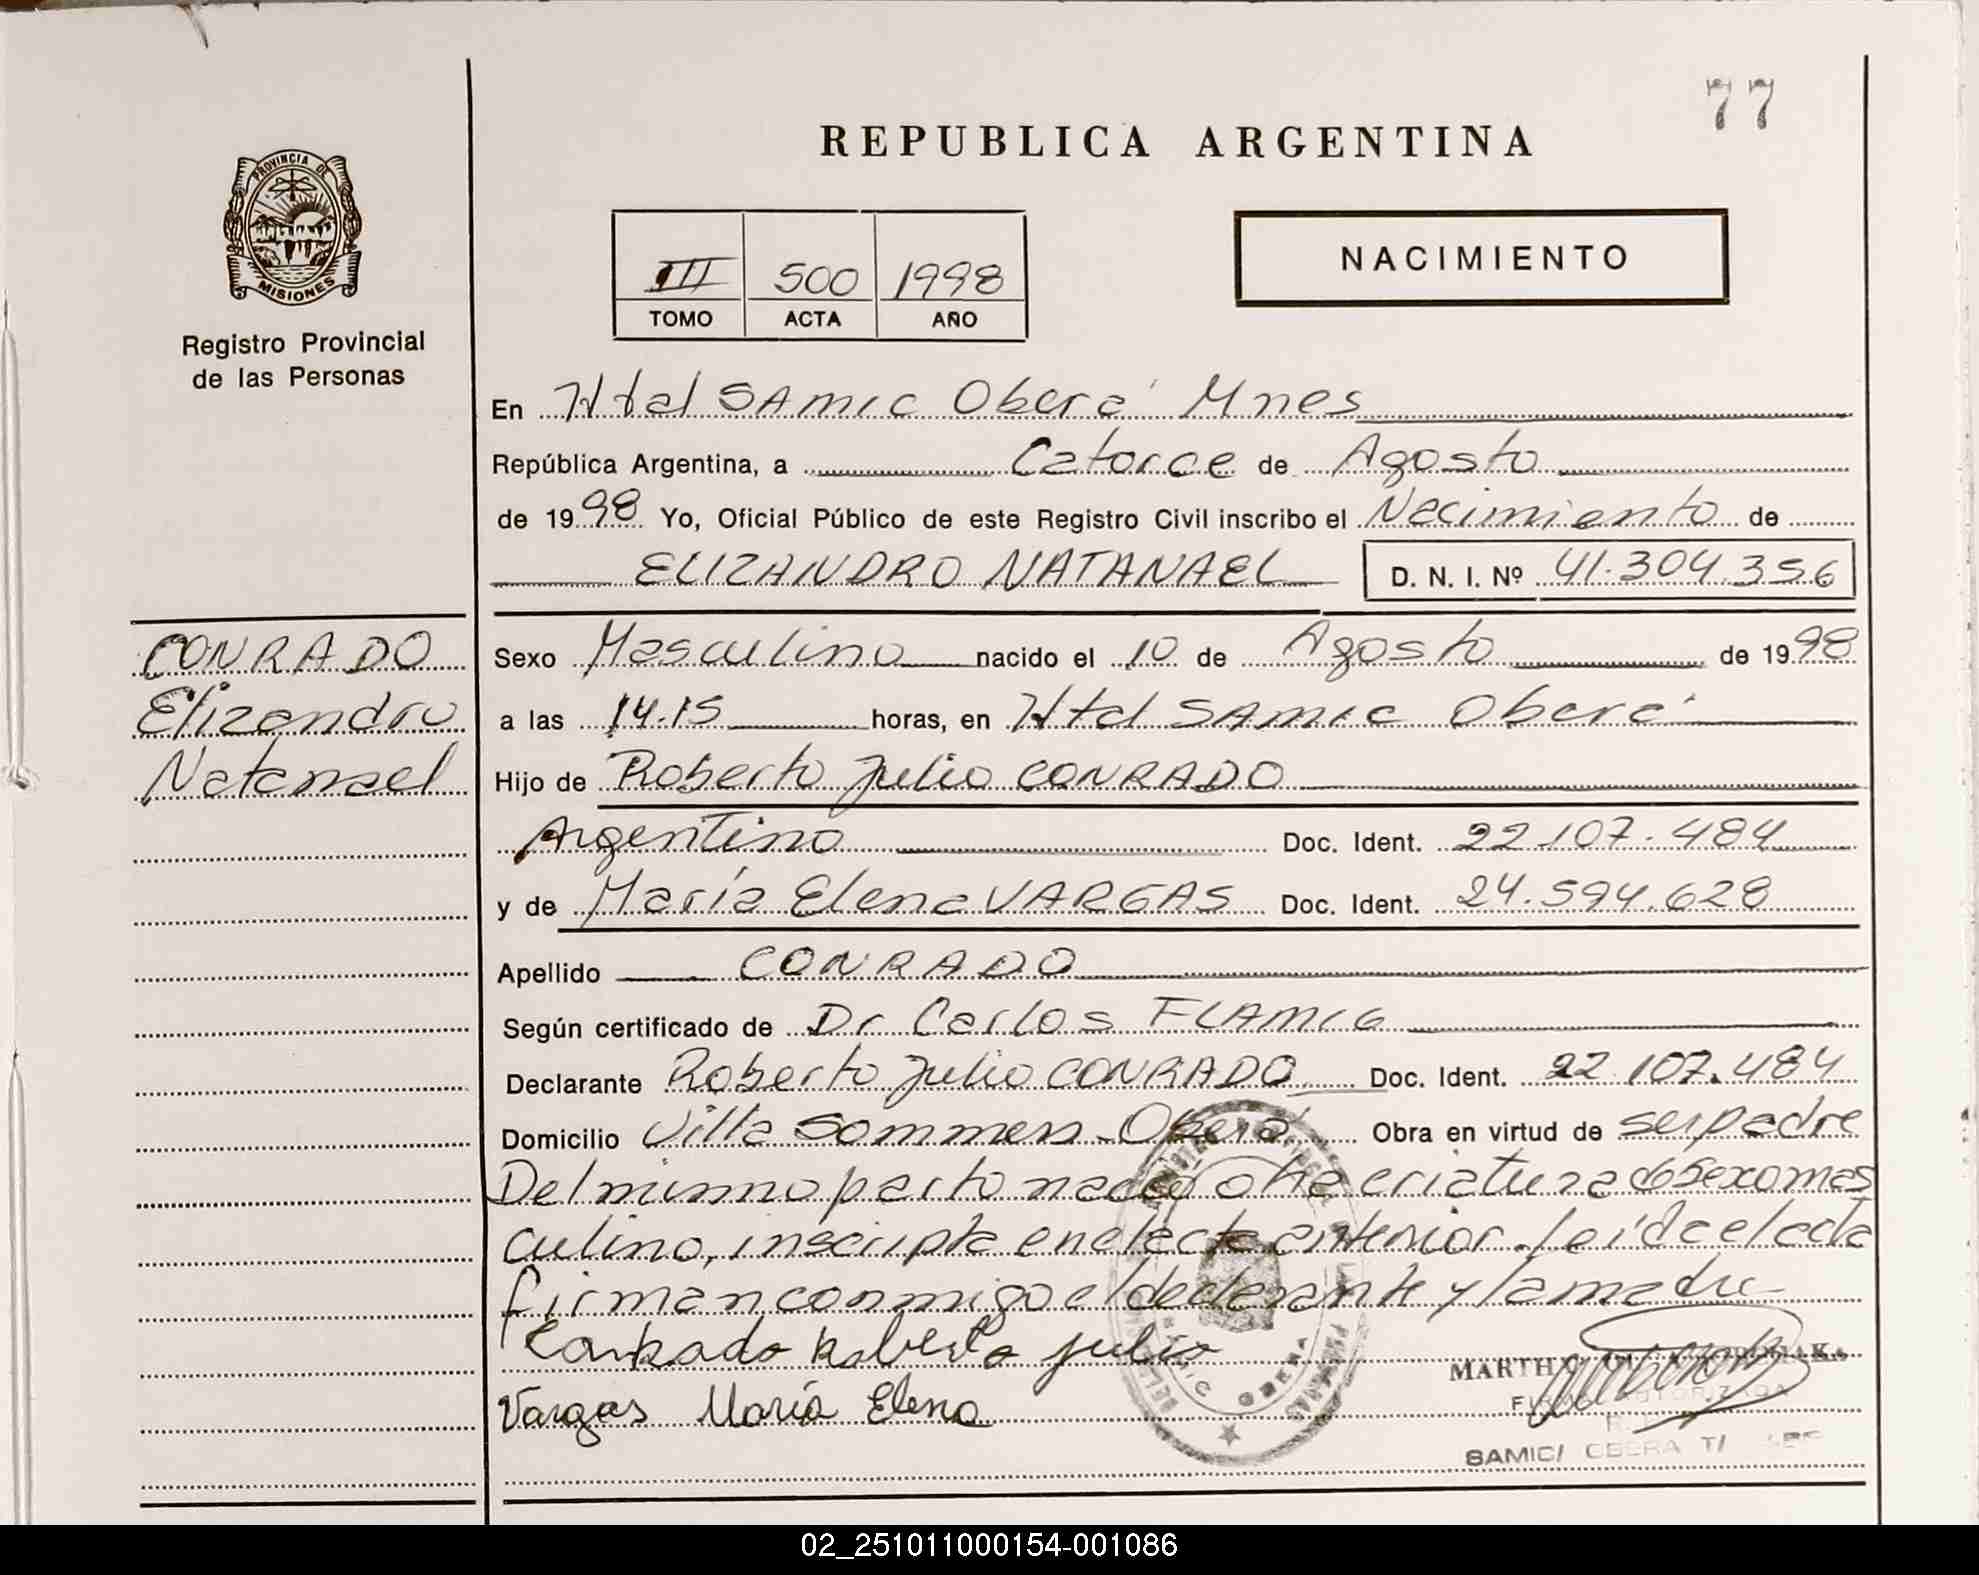 77
REPUBLICA ARGENTINA
PROVINCIA DE
MISIONES
Registro Provincial
de las Personas
III 500 1998
TOMO ACTA AÑO
NACIMIENTO
En Htal SAMIC Oberá Mnes
República Argentina, a Catorce de Agosto
de 1998 Yo, Oficial Público de este Registro Civil inscribo el Nacimiento de
ELIZANDRO NATANAEL D. N. I. Nº 41.304.356
CONRADO
Elizandro
Natanael
Sexo Masculino nacido el 10 de Agosto de 1998
a las 14.15 horas, en Htal SAMIC Oberá
Hijo de Roberto Julio CONRADO
Argentino Doc. Ident. 22.107.484
y de María Elena VARGAS Doc. Ident. 24.594.628
Apellido CONRADO
Según certificado de Dr Carlos FLAMIG
Declarante Roberto Julio CONRADO Doc. Ident. 22.107.484
Domicilio Villa Sommers Oberá Obra en virtud de ser padre
Del mismo parto nació otra criatura de sexo mas
culino, inscripta en el acta anterior. leída el acta
firman conmigo el declarante y la madre
Conrado Roberto julio
Vargas María Elena
MARTHA
SAMIC/ OBERA
02_251011000154-001086